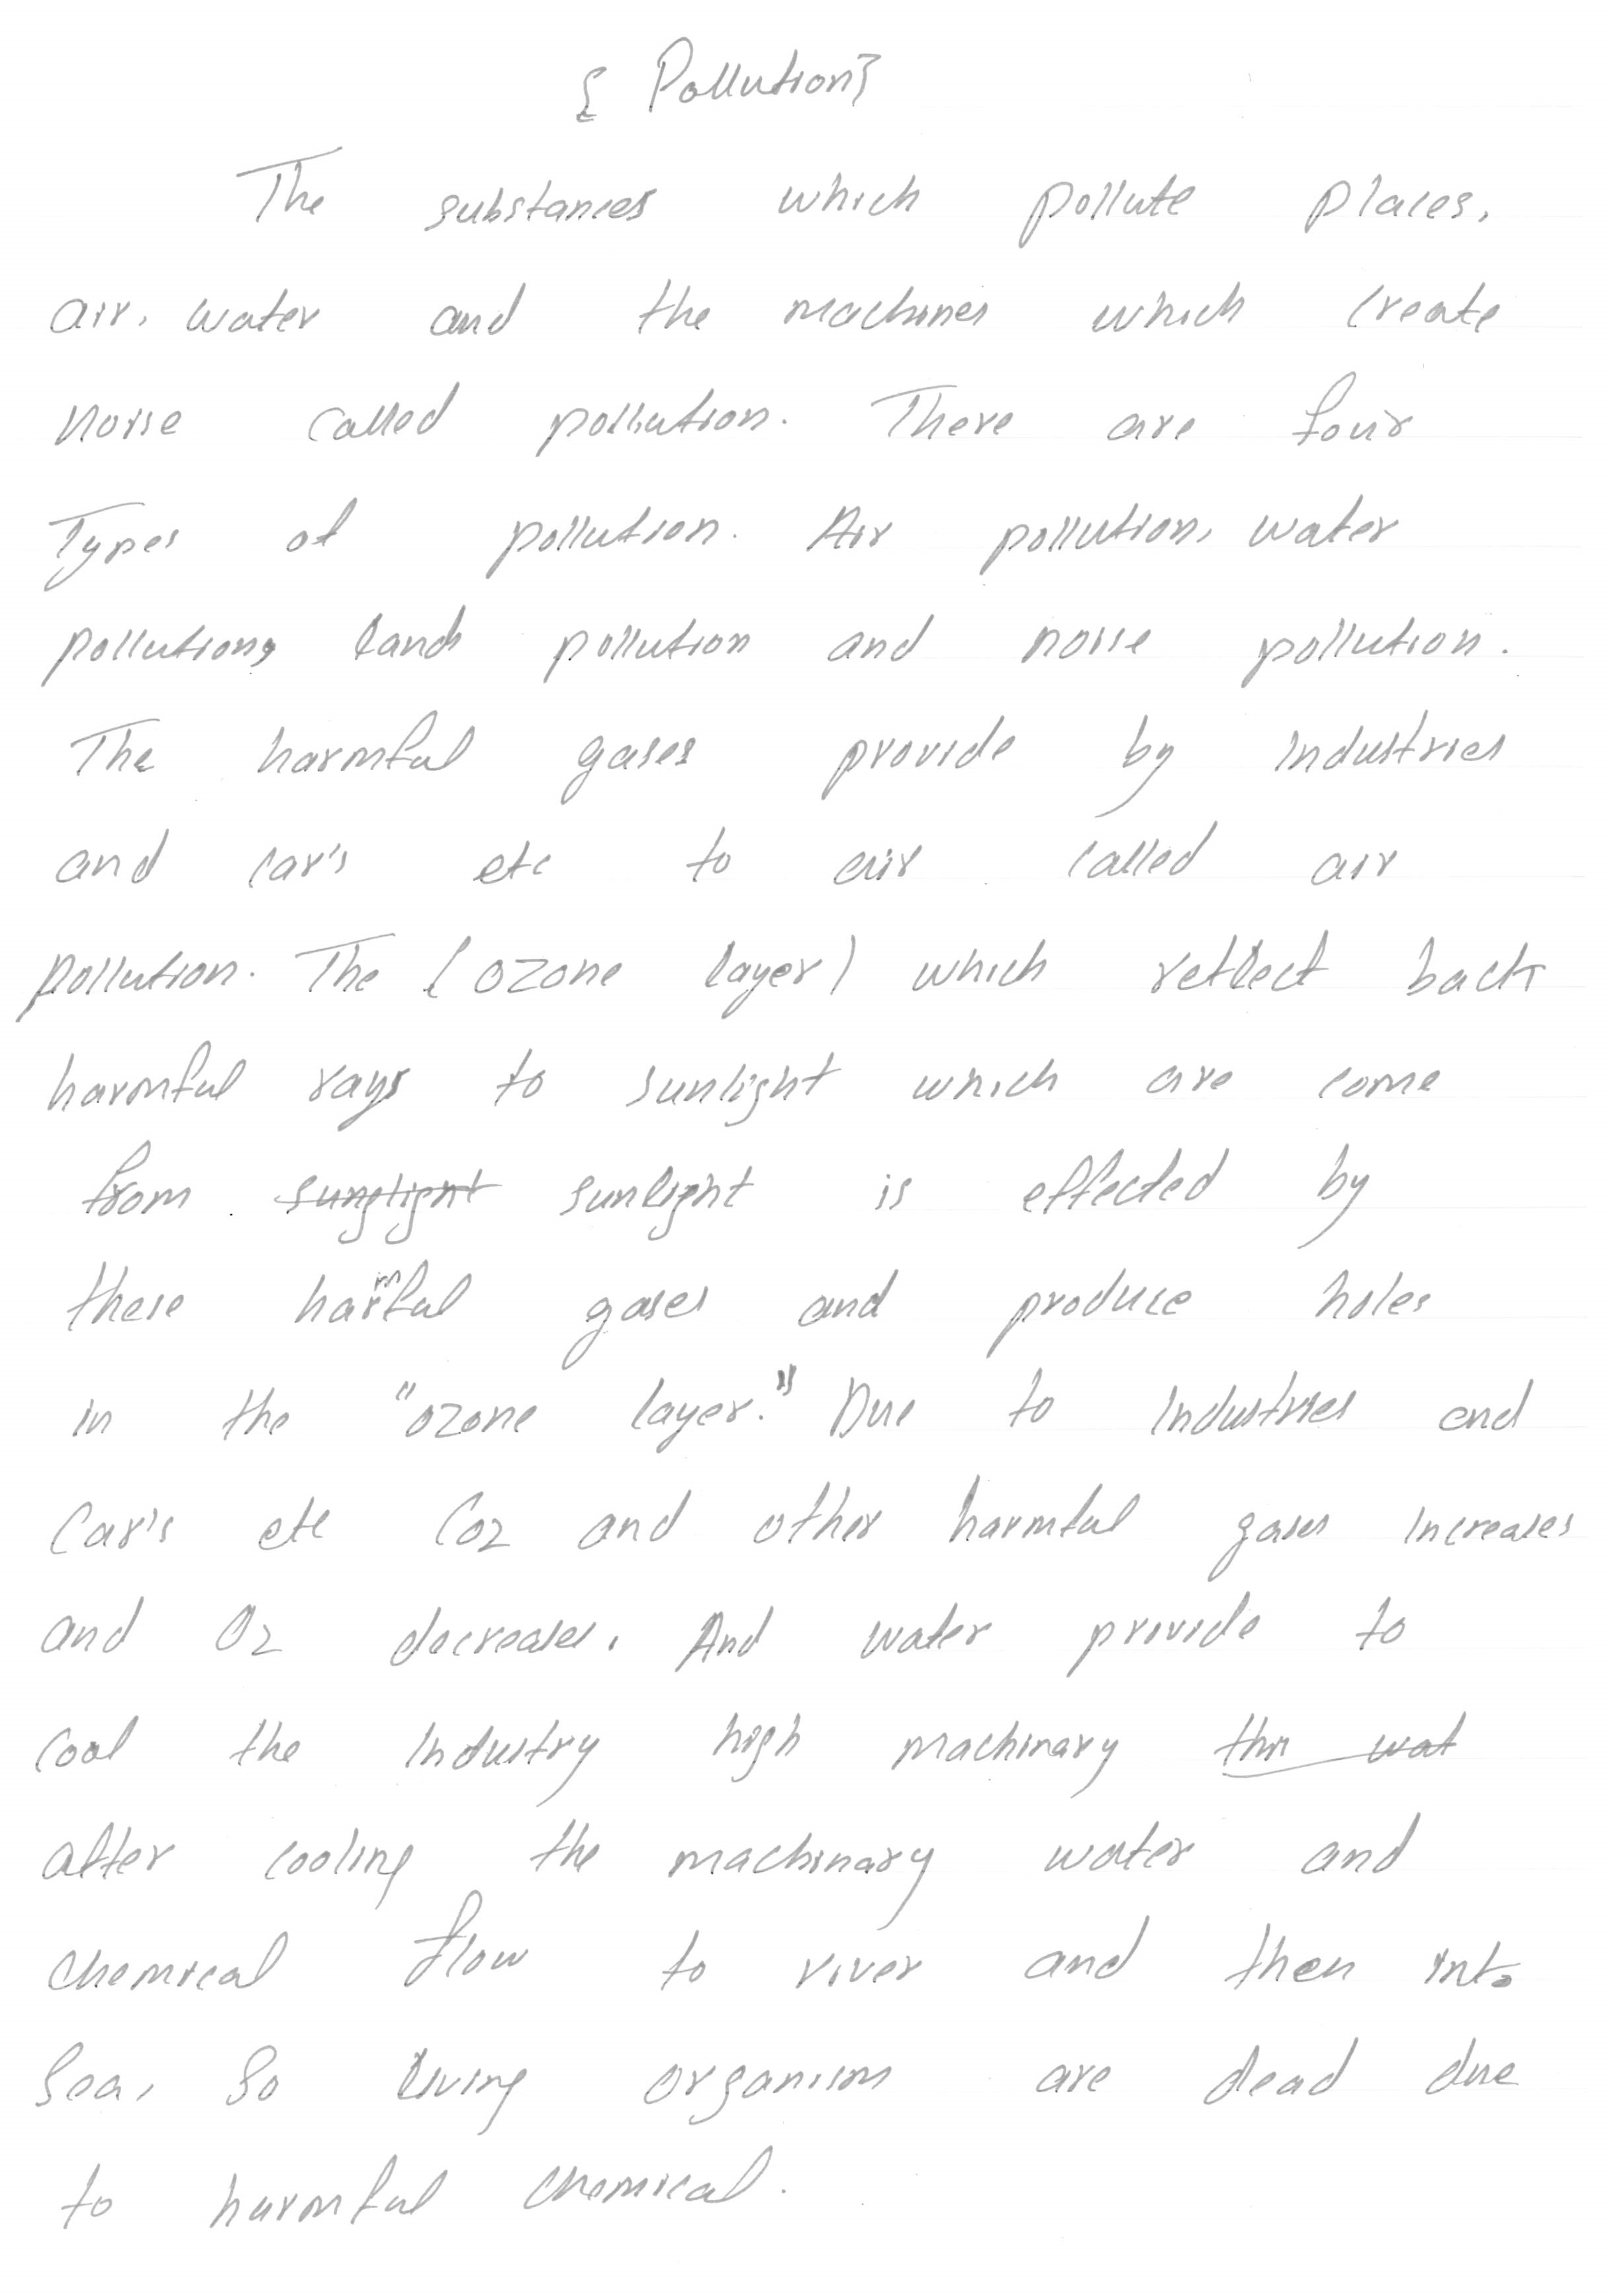 { Pollution}
The substances which pollute places,
air, water and the machines which create
noise called pollution. There are four
Types of pollution. Air pollution, water
pollution, land pollution and noise pollution.
The harmful gases provide by industries
and car's etc to air called air
pollution. The (ozone layer) which reflect back
harmful rays to sunlight which are come
from sunglight sunlight is effected by
these harmful gases and produce holes
in the "ozone layer." Due to industries and
Car's etc Co2 and other harmful gases increases
and O2 decreases. And water provide to
cool the industry high machinary this wat
after cooling the machinary water and
chemical flow to river and then into
Sea, So living organism are dead due
to harmful chemical.